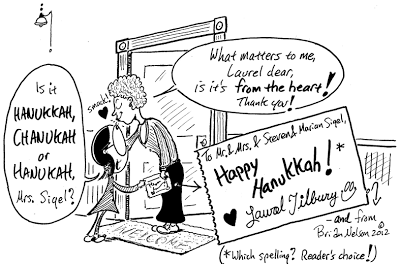 Is it
HANUKKAH,
CHANUKAH
or
HANUKAH,
Mrs. Sigel?
smack!
What matters to me,
Laurel dear,
is it's from the heart!
Thank you!
To Mr. & Mrs. & Steven & Marian Sigel,
Happy
Hanukkah!*
Laurel Tilbury
- and from
Brian Nelson ©
2012
WELCOME
(*Which spelling? Reader's choice!)